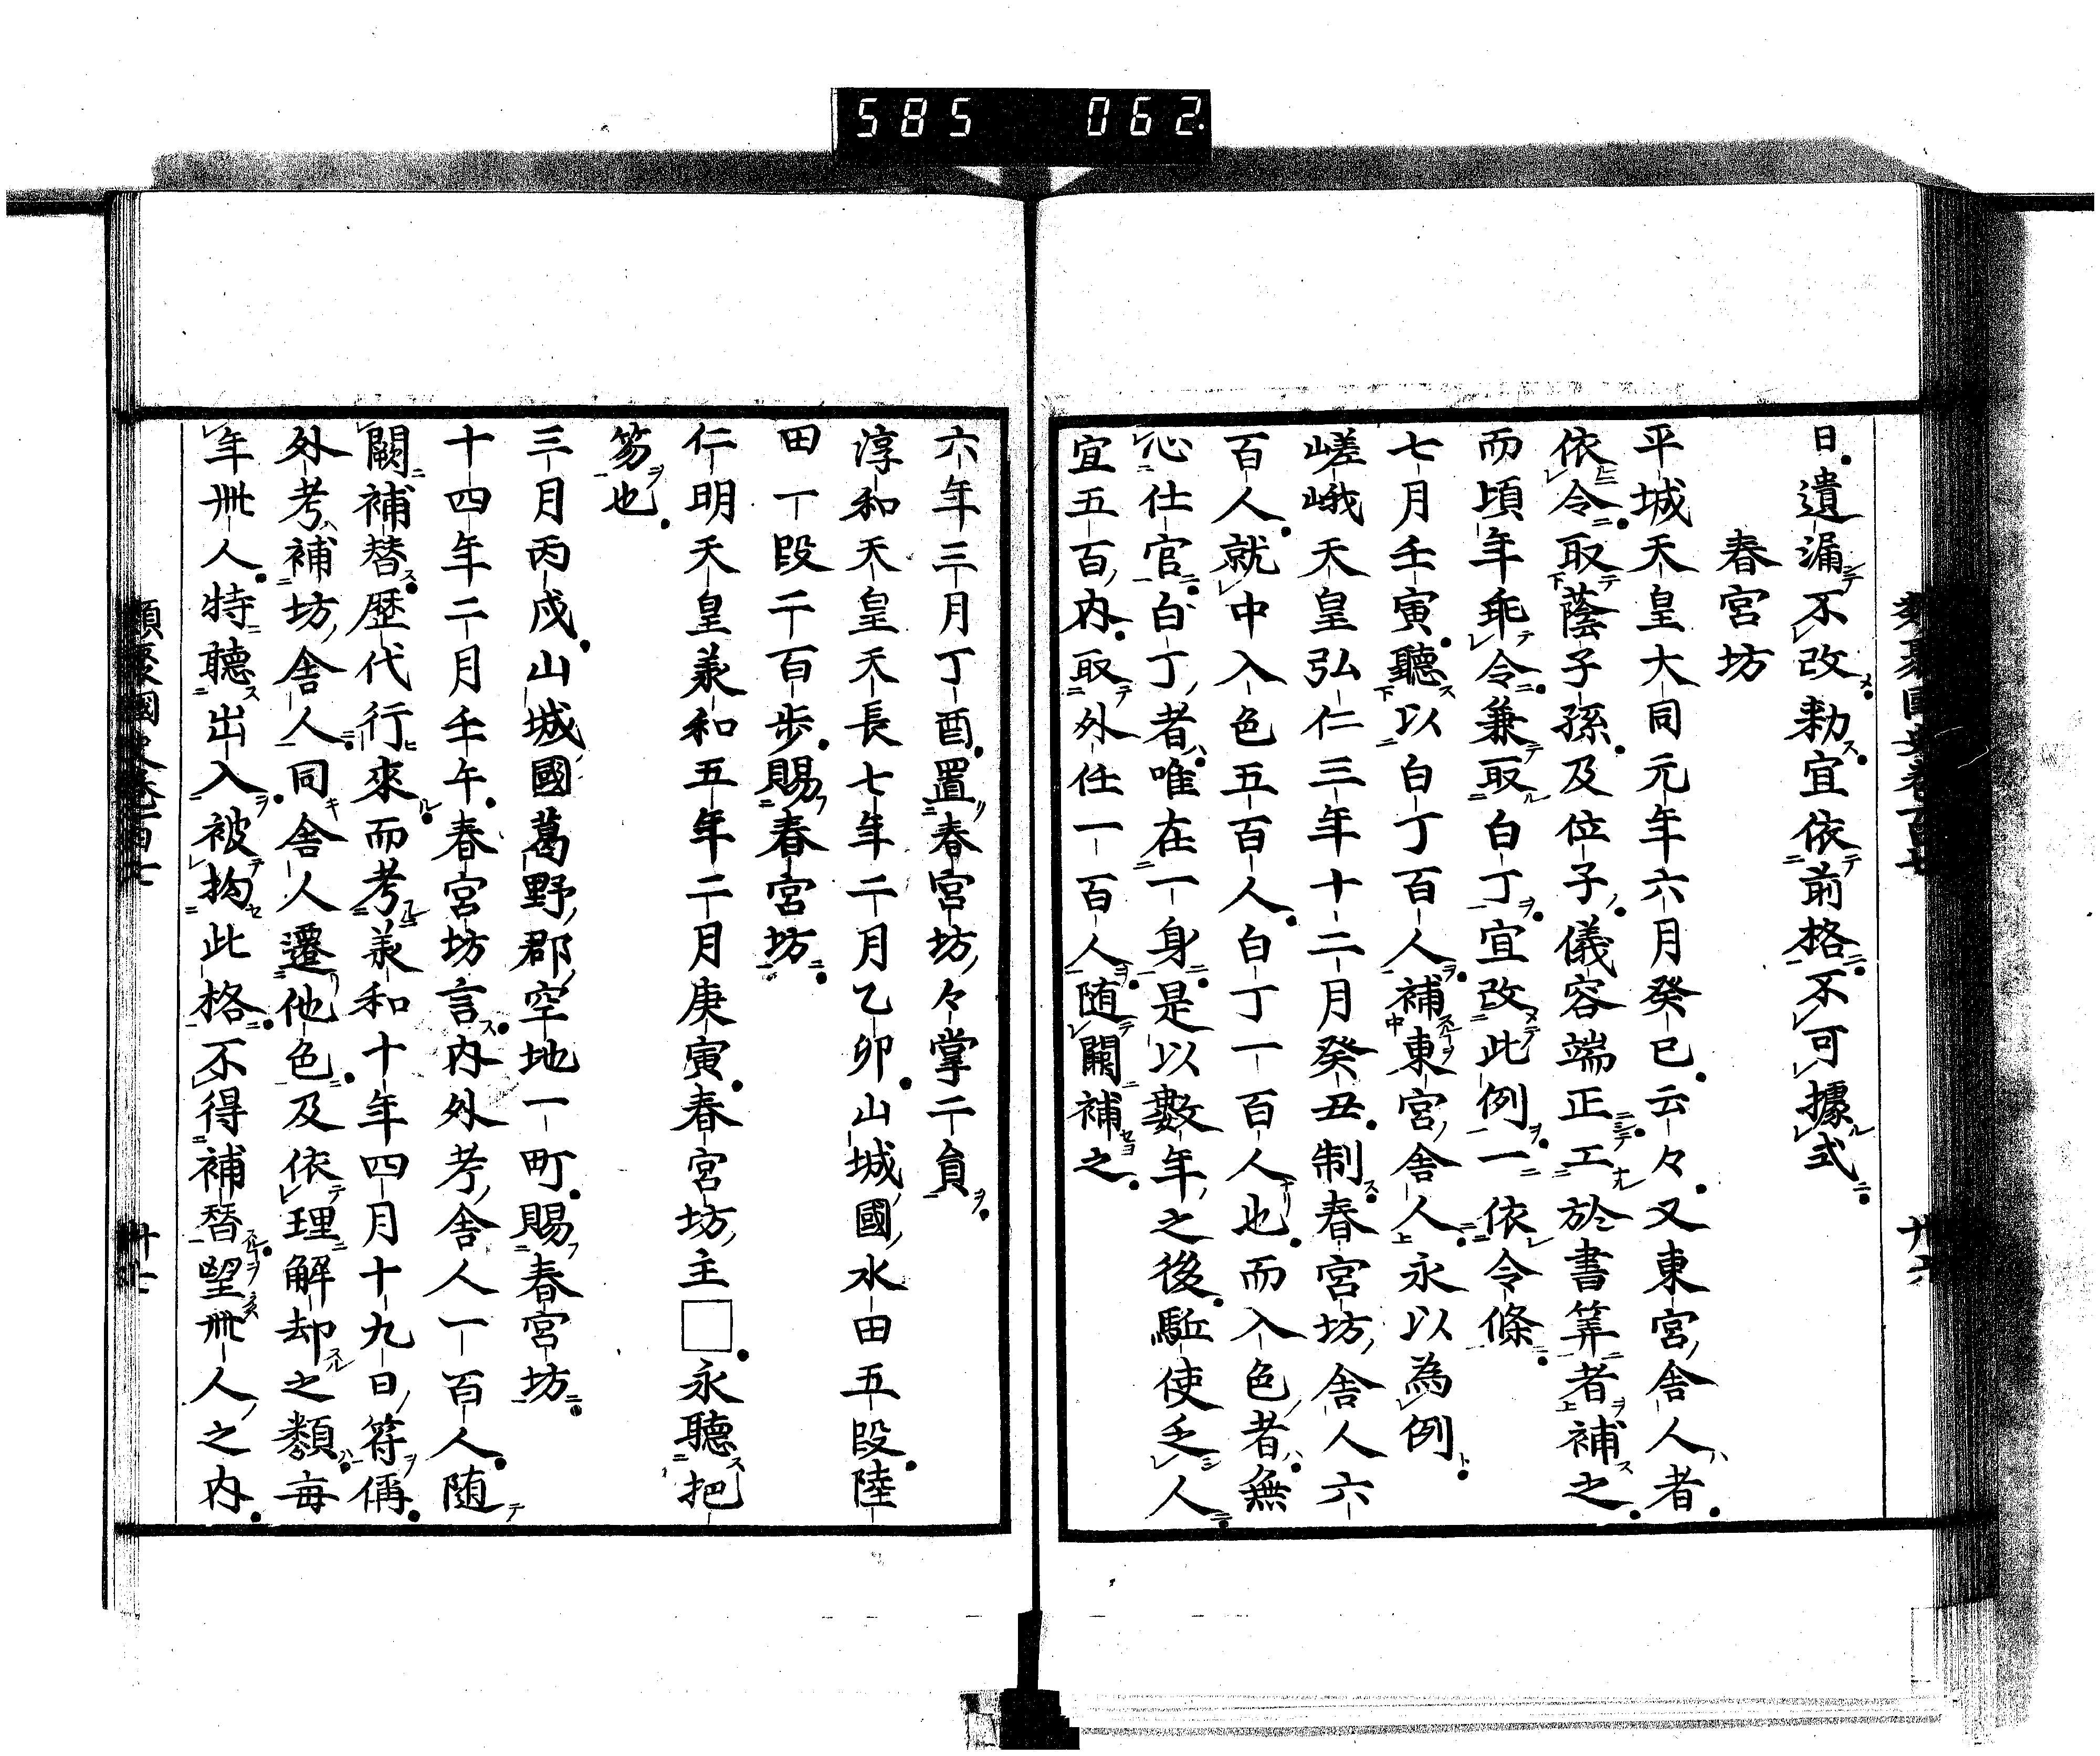 585 062
日遺漏不改勅宜依前格不可據式
春宮坊
平城天皇大同元年六月癸巳云々又東宮舎人者
依令取蔭子孫及位子儀容端正工於書筭者補之
而頃年乖令兼取白丁宜改此例一依令條
七月壬寅聽以白丁百人補東宮舎人永以為例
嵯峨天皇弘仁三年十二月癸丑制春宮坊舎人六
百人就中入色五百人白丁一百人也而入色者無
心仕官白丁者唯在一身是以數年之後駈使乏人
宜五百内取外任一百人随闕補之
六年三月丁酉置春宮坊々掌二員
淳和天皇天長七年二月乙卯山城國水田五段陸
田一段二百歩賜春宮坊
仁明天皇義和五年二月庚寅春宮坊主□永聽把
笏也
三月丙戌山城國葛野郡空地一町賜春宮坊
十四年二月壬午春宮坊言内外考舎人一百人随
闕補替歴代行來而考義和十年四月十九日符偁
外考補坊舎人同舎人遷他色及依理解却之類毎
年卌人特聽出入被拘此格不得補替望卌人之内
類聚國史卷百七